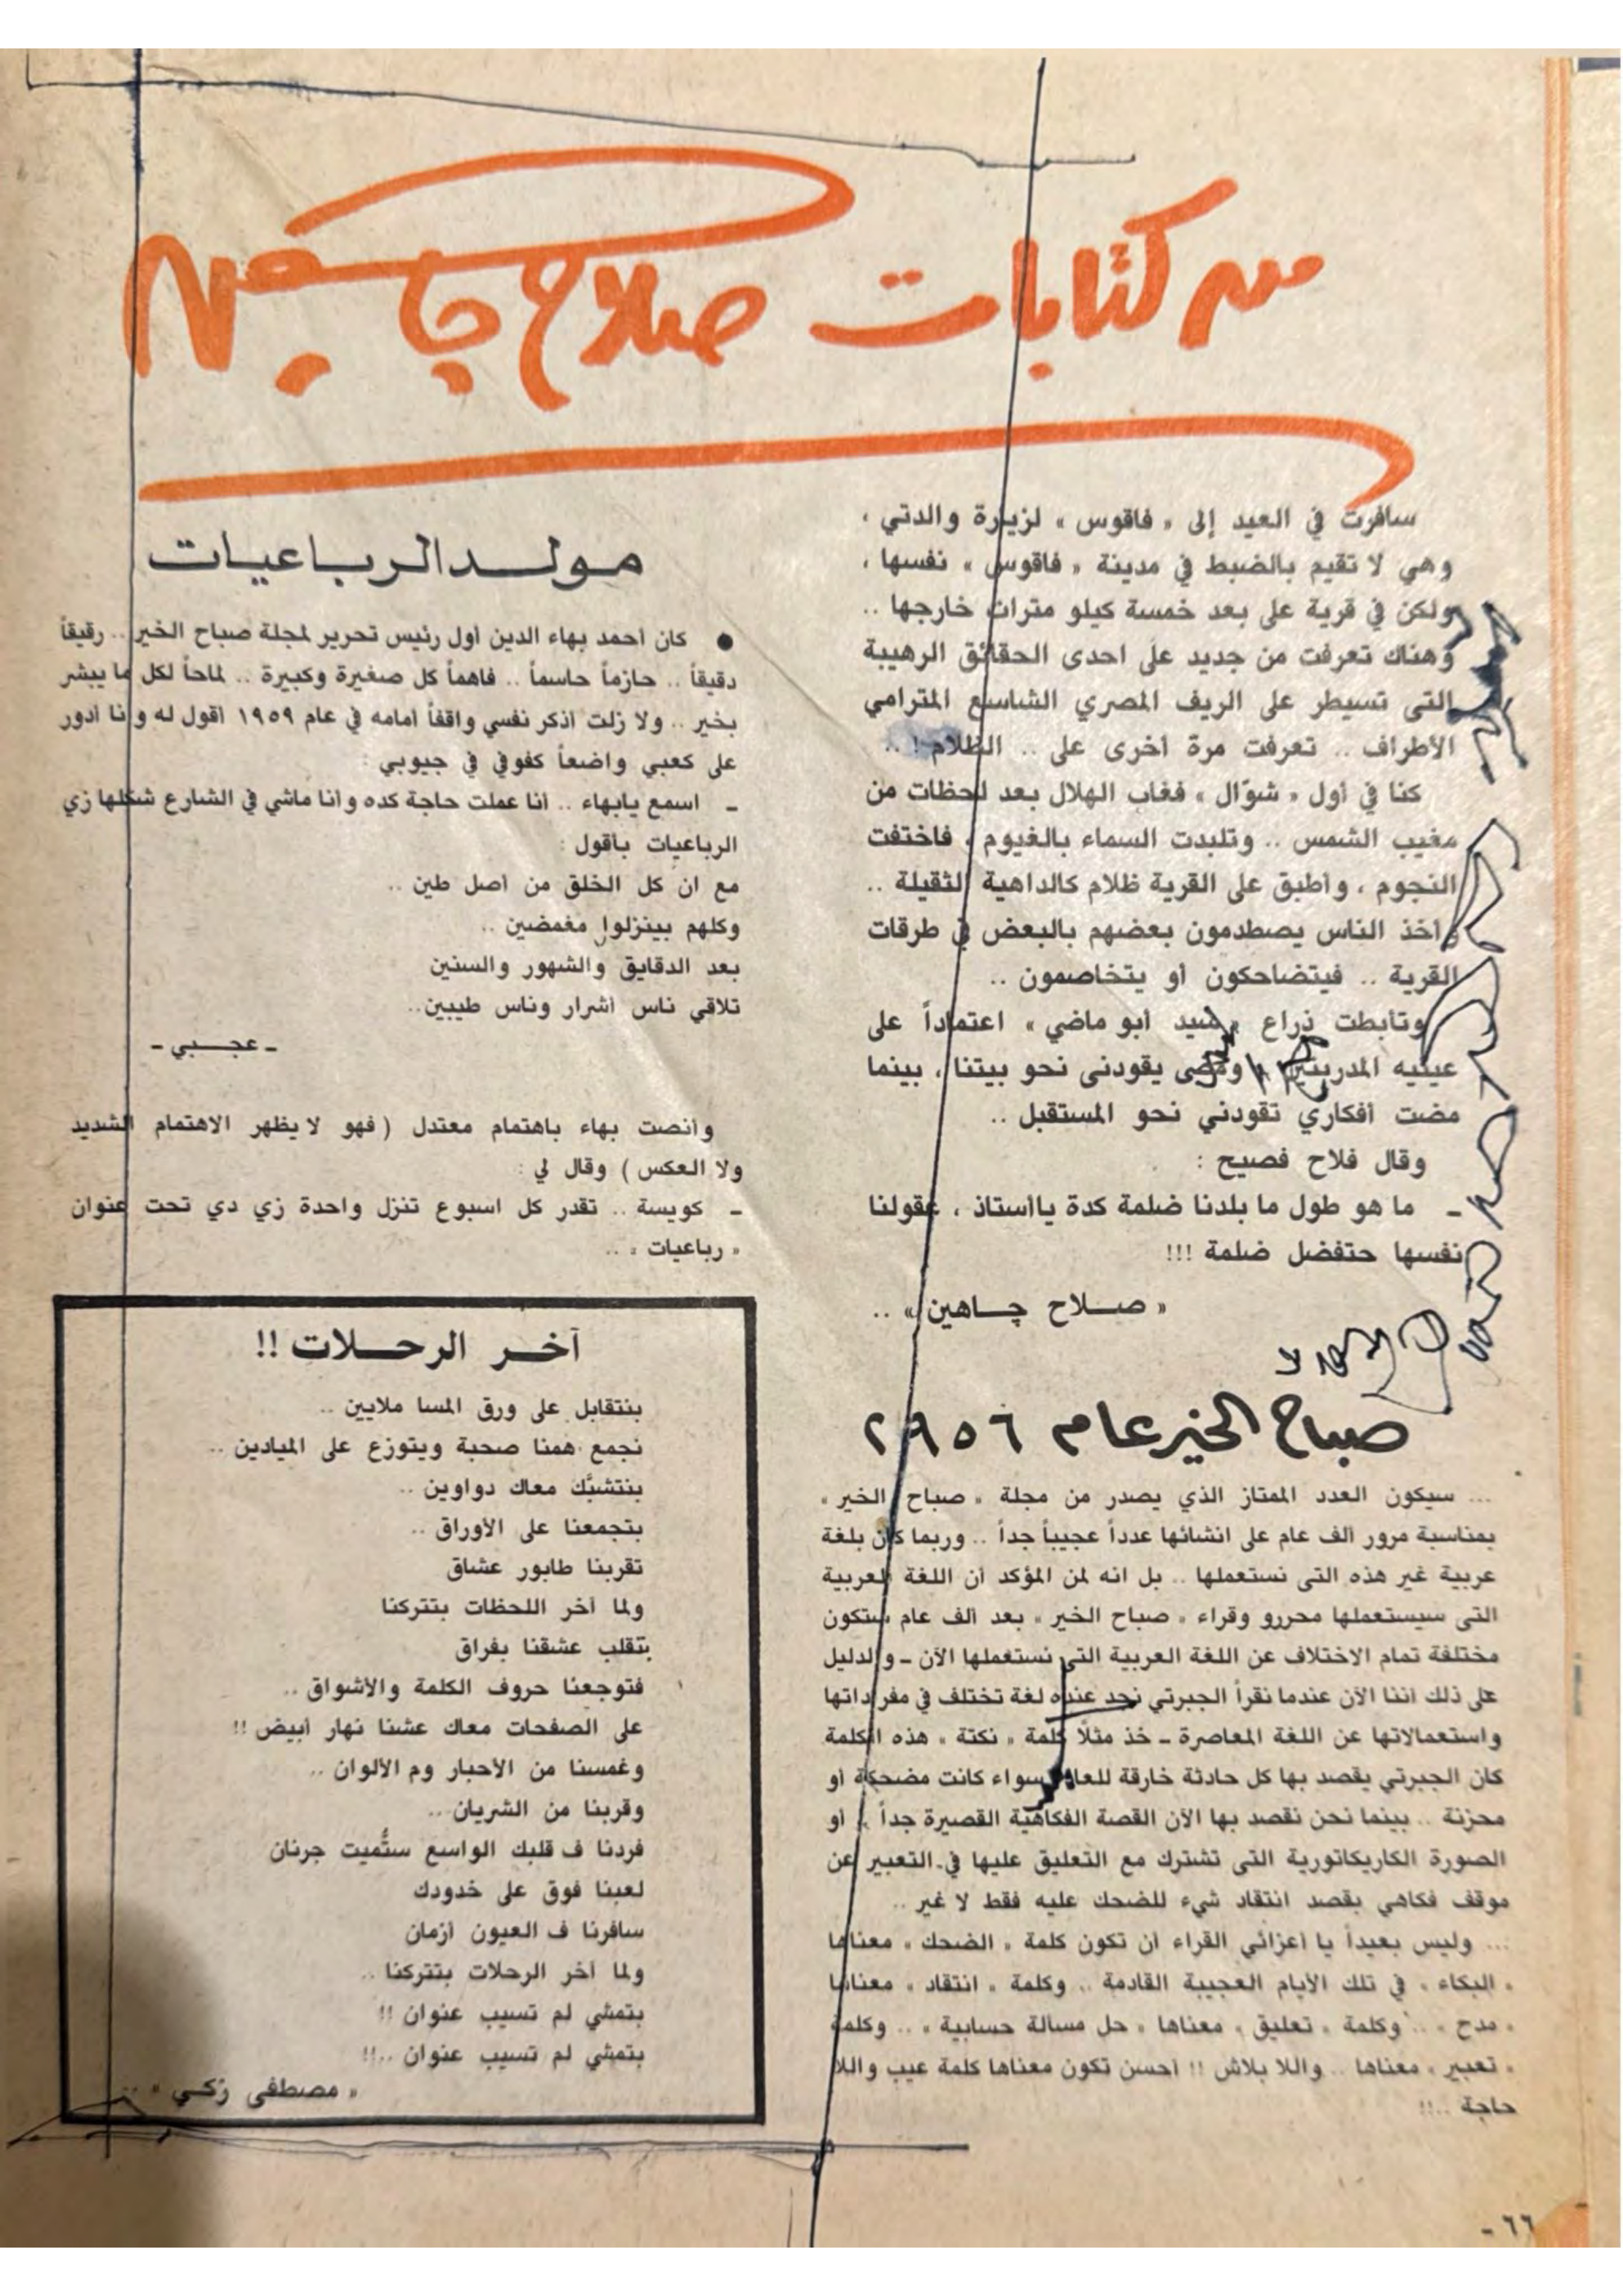 من كتابات صلاح چاهين
سافرت في العيد إلى « فاقوس » لزيارة والدتي ،
وهي لا تقيم بالضبط في مدينة « فاقوس » نفسها ،
ولكن في قرية على بعد خمسة كيلو مترات خارجها ..
وهناك تعرفت من جديد على احدى الحقائق الرهيبة
التى تسيطر على الريف المصري الشاسع المترامي
الأطراف .. تعرفت مرة أخرى على .. الظلام ! ..
كنا في أول « شوّال » فغاب الهلال بعد لحظات من
مغيب الشمس .. وتلبدت السماء بالغيوم ، فاختفت
النجوم ، وأطبق على القرية ظلام كالداهية الثقيلة ..
وأخذ الناس يصطدمون بعضهم بالبعض في طرقات
القرية .. فيتضاحكون أو يتخاصمون ..
وتأبطت ذراع « سيد أبو ماضي » اعتماداً على
عينيه المدربتين ، ومضى يقودنى نحو بيتنا ، بينما
مضت أفكاري تقودني نحو المستقبل ..
وقال فلاح فصيح :
ـ ما هو طول ما بلدنا ضلمة كدة ياأستاذ ، عقولنا
نفسها حتفضل ضلمة !!!
« صلاح چاهين » ..
صباح الخير عام ٢٩٥٦
... سيكون العدد الممتاز الذي يصدر من مجلة « صباح الخير »
بمناسبة مرور ألف عام على انشائها عدداً عجيباً جداً .. وربما كان بلغة
عربية غير هذه التى نستعملها .. بل انه لمن المؤكد أن اللغة العربية
التى سيستعملها محررو وقراء « صباح الخير » بعد ألف عام ستكون
مختلفة تمام الاختلاف عن اللغة العربية التى نستعملها الآن ـ والدليل
على ذلك اننا الآن عندما نقرأ الجبرتي نجد عنده لغة تختلف في مفرداتها
واستعمالاتها عن اللغة المعاصرة ـ خذ مثلًا كلمة « نكتة » هذه الكلمة
كان الجبرتي يقصد بها كل حادثة خارقة للعادة سواء كانت مضحكة أو
محزنة .. بينما نحن نقصد بها الآن القصة الفكاهية القصيرة جداً ، أو
الصورة الكاريكاتورية التى تشترك مع التعليق عليها في التعبير عن
موقف فكاهي بقصد انتقاد شيء للضحك عليه فقط لا غير ..
... وليس بعيداً يا أعزائي القراء أن تكون كلمة « الضحك » معناها
« البكاء » في تلك الأيام العجيبة القادمة .. وكلمة « انتقاد » معناها
« مدح » .. وكلمة « تعليق » معناها « حل مسألة حسابية » .. وكلمة
« تعبير » معناها .. واللا بلاش !! أحسن تكون معناها كلمة عيب واللا
حاجة ..!!
مولد الرباعيات
● كان أحمد بهاء الدين أول رئيس تحرير لمجلة صباح الخير .. رقيقاً
دقيقاً .. حازماً حاسماً .. فاهماً كل صغيرة وكبيرة .. لماحاً لكل ما يبشر
بخير .. ولا زلت أذكر نفسي واقفاً أمامه في عام ١٩٥٩ أقول له وأنا أدور
على كعبي واضعاً كفوفي في جيوبي :
ـ اسمع يابهاء .. أنا عملت حاجة كده وأنا ماشي في الشارع شكلها زي
الرباعيات بأقول :
مع ان كل الخلق من أصل طين ..
وكلهم بينزلوا مغمضين ..
بعد الدقايق والشهور والسنين
تلاقي ناس أشرار وناس طيبين..
ـ عجبي ـ
وأنصت بهاء باهتمام معتدل ( فهو لا يظهر الاهتمام الشديد
ولا العكس ) وقال لي :
ـ كويسة .. تقدر كل اسبوع تنزل واحدة زي دي تحت عنوان
« رباعيات » ..
آخر الرحلات !!
بنتقابل على ورق المسا ملايين ..
نجمع همنا صحبة ويتوزع على الميادين ..
بنتشبَّك معاك دواوين ..
بتجمعنا على الأوراق ..
تقربنا طابور عشاق
ولما آخر اللحظات بتتركنا
بتقلب عشقنا بفراق
فتوجعنا حروف الكلمة والأشواق ..
على الصفحات معاك عشنا نهار أبيض !!
وغمسنا من الأحبار وم الألوان ..
وقربنا من الشريان ..
فردنا ف قلبك الواسع ستُّميت جرنان
لعبنا فوق على خدودك
سافرنا ف العيون أزمان
ولما آخر الرحلات بتتركنا ..
بتمشي لم تسيب عنوان !!
بتمشي لم تسيب عنوان ..!!
« مصطفى زكي » ..
٦٦ -